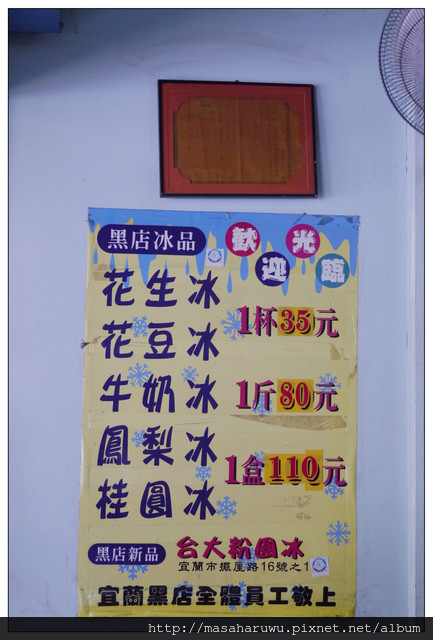 黑店冰品
歡迎光臨
花生冰
花豆冰
牛奶冰
鳳梨冰
桂圓冰
1杯35元
1斤80元
1盒110元
黑店新品
台大粉圓冰
宜蘭市擺厘路16號之1
宜蘭黑店全體員工敬上
http://masaharuwu.pixnet.net/album